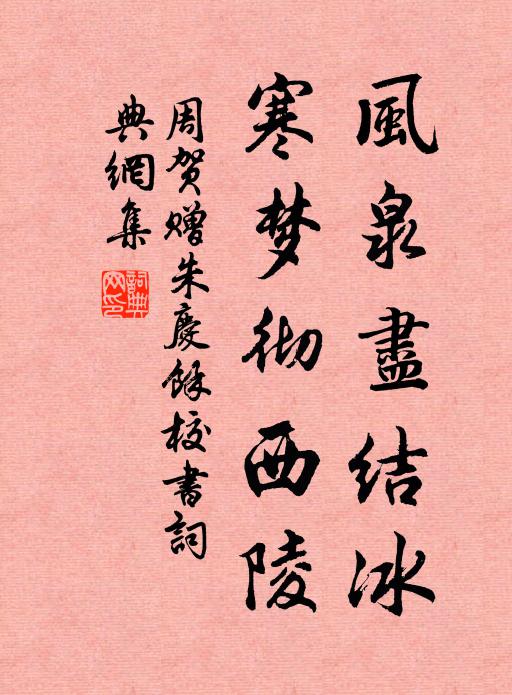 風泉盡结冰
寒梦彻西陵
周贺赠朱慶餘校書詞
典網集
詞典网印